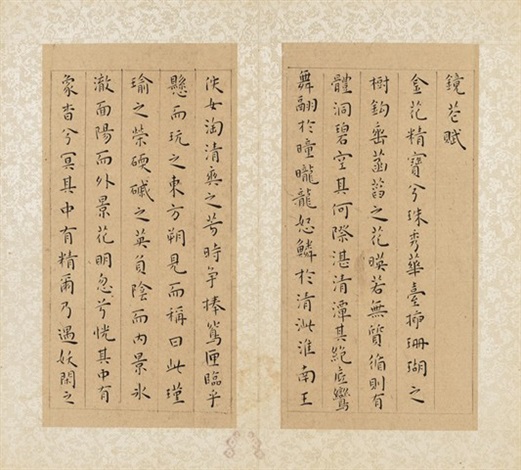 鏡花賦
金花精寶兮珠秀華臺擲珊瑚之
樹鈎垂菡萏之花暎若無質循則有
體洞碧空其何際湛清潭其絕底鸞
舞翮於曈曨龍怒鱗於清泚淮南王
佚女淘清爽之芳時爭捧鸞匣臨乎
懸而玩之東方朔見而稱曰此瑾
瑜之榮碝磩之英負陰而內景氷
澈面陽而外景花明忽兮恍其中有
象杳兮冥其中有精爾乃遇妖閑之